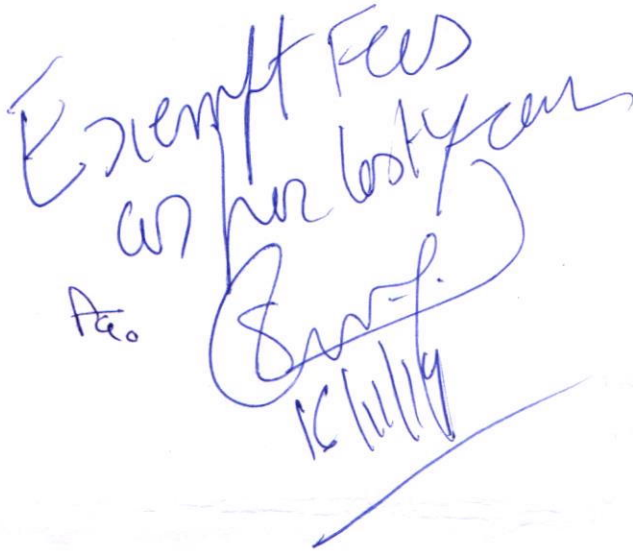 Exempt Fees
as per last year
16/11/19